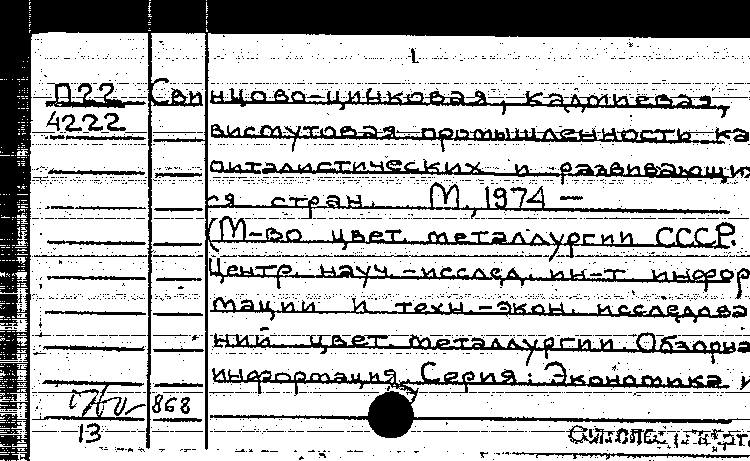 1
П22 Свинцово-цинковая, кадмиевая,
4222 висмутовая промышленность ка
питалистических и развивающих
ся стран. М., 1974 —
(М-во цвет. металлургии СССР.
Центр. науч.-исслед. ин-т инфор
мации и техн.-экон. исследова
ний цвет. металлургии. Обзорна
информация. Серия: Экономика и
868
13